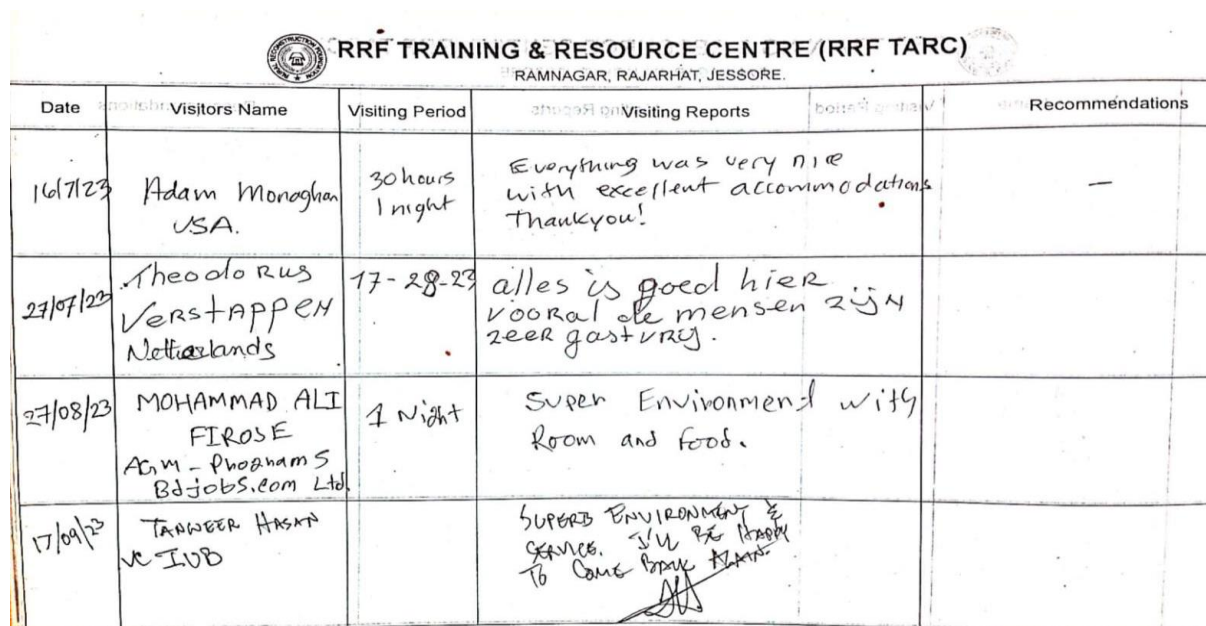 RRF TRAINING & RESOURCE CENTRE (RRF TARC)
RAMNAGAR, RAJARHAT, JESSORE.
RURAL RECONSTRUCTION FOUNDATION
Date Visitors Name Visiting Period Visiting Reports Recommendations
16/7/23
Adam Monaghan
USA.
30 hours
1 night
Everything was very nice
with excellent accommodations
Thankyou!
—
27/07/23
Theodorus
Verstappen
Netherlands
17-28-23
alles is goed hier
vooral de mensen zijn
zeer gastvrij.
27/08/23
MOHAMMAD ALI
FIROSE
AGM - Programs
Bdjobs.com Ltd.
1 Night
Super Environmend with
Room and food.
17/09/23
TANWEER HASAN
VC IUB
SUPERB ENVIRONMENT &
SERVICE. I'LL BE HAPPY
TO COME BACK AGAIN.